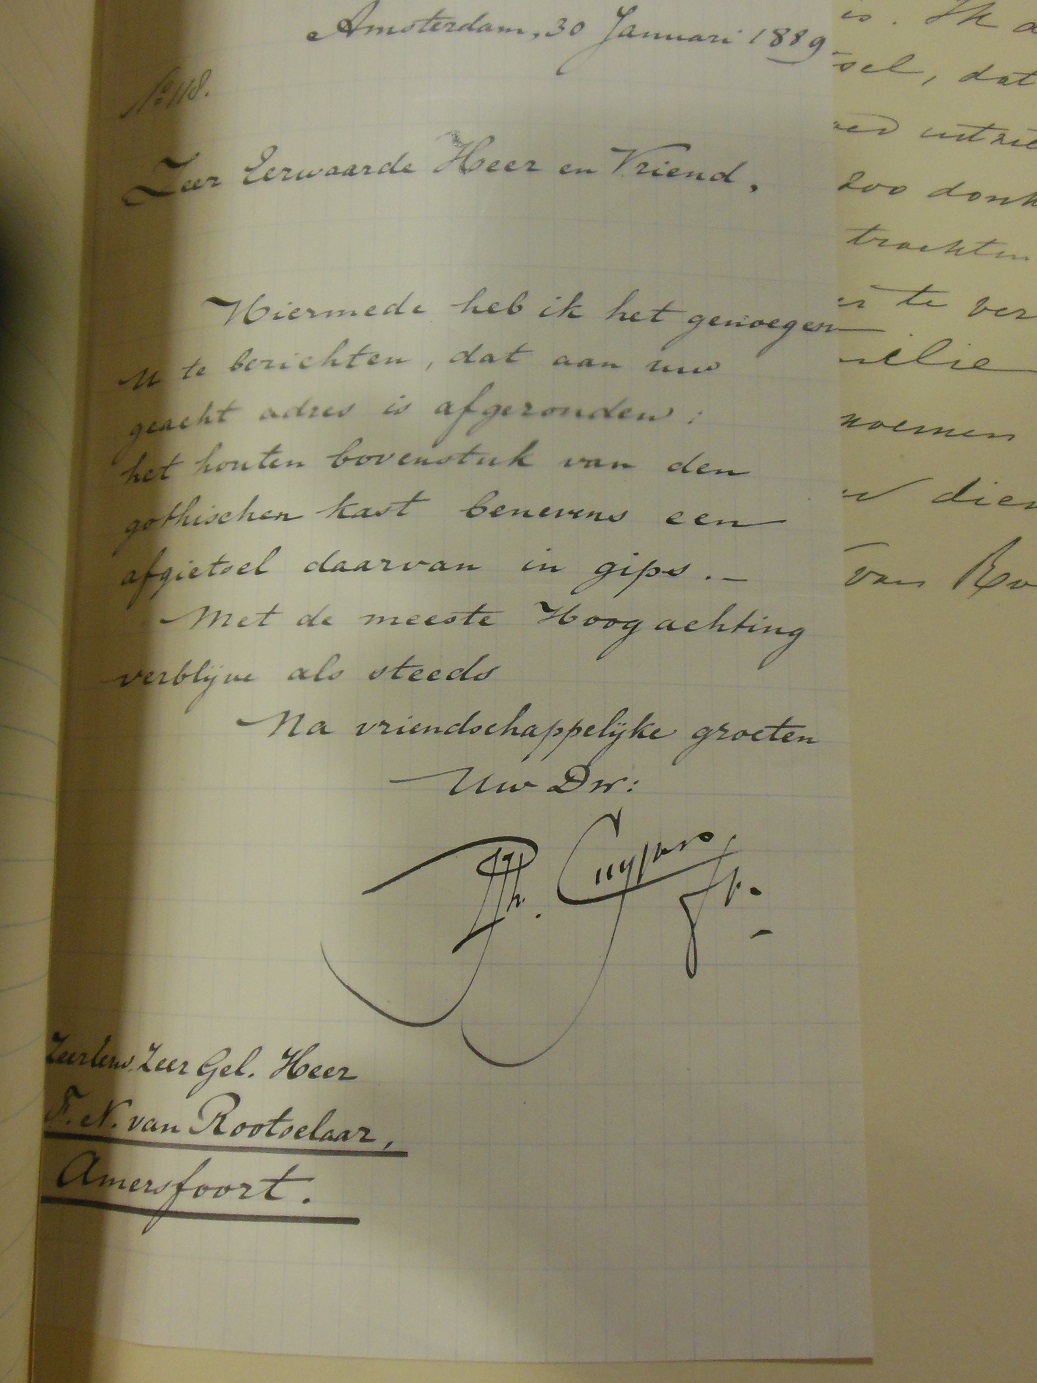 Amsterdam, 30 Januari 1889
No 118.
Zeer Eerwaarde Heer en Vriend,
Hiermede heb ik het genoegen
U te berichten, dat aan uw
geacht adres is afgezonden:
het houten bovenstuk van den
gothischen kast benevens een
afgietsel daarvan in gips. –
Met de meeste Hoogachting
verblijve als steeds
Na vriendschappelijke groeten
Uw Dw:
Ph. Cuypers Jr. –
ZeerEerw. Zeer Gel. Heer
F. N. van Rootselaar,
Amersfoort.
is. Ik
sel, dat
zoo donk
trachten
te ver
milie
noemen
dien
van Ro